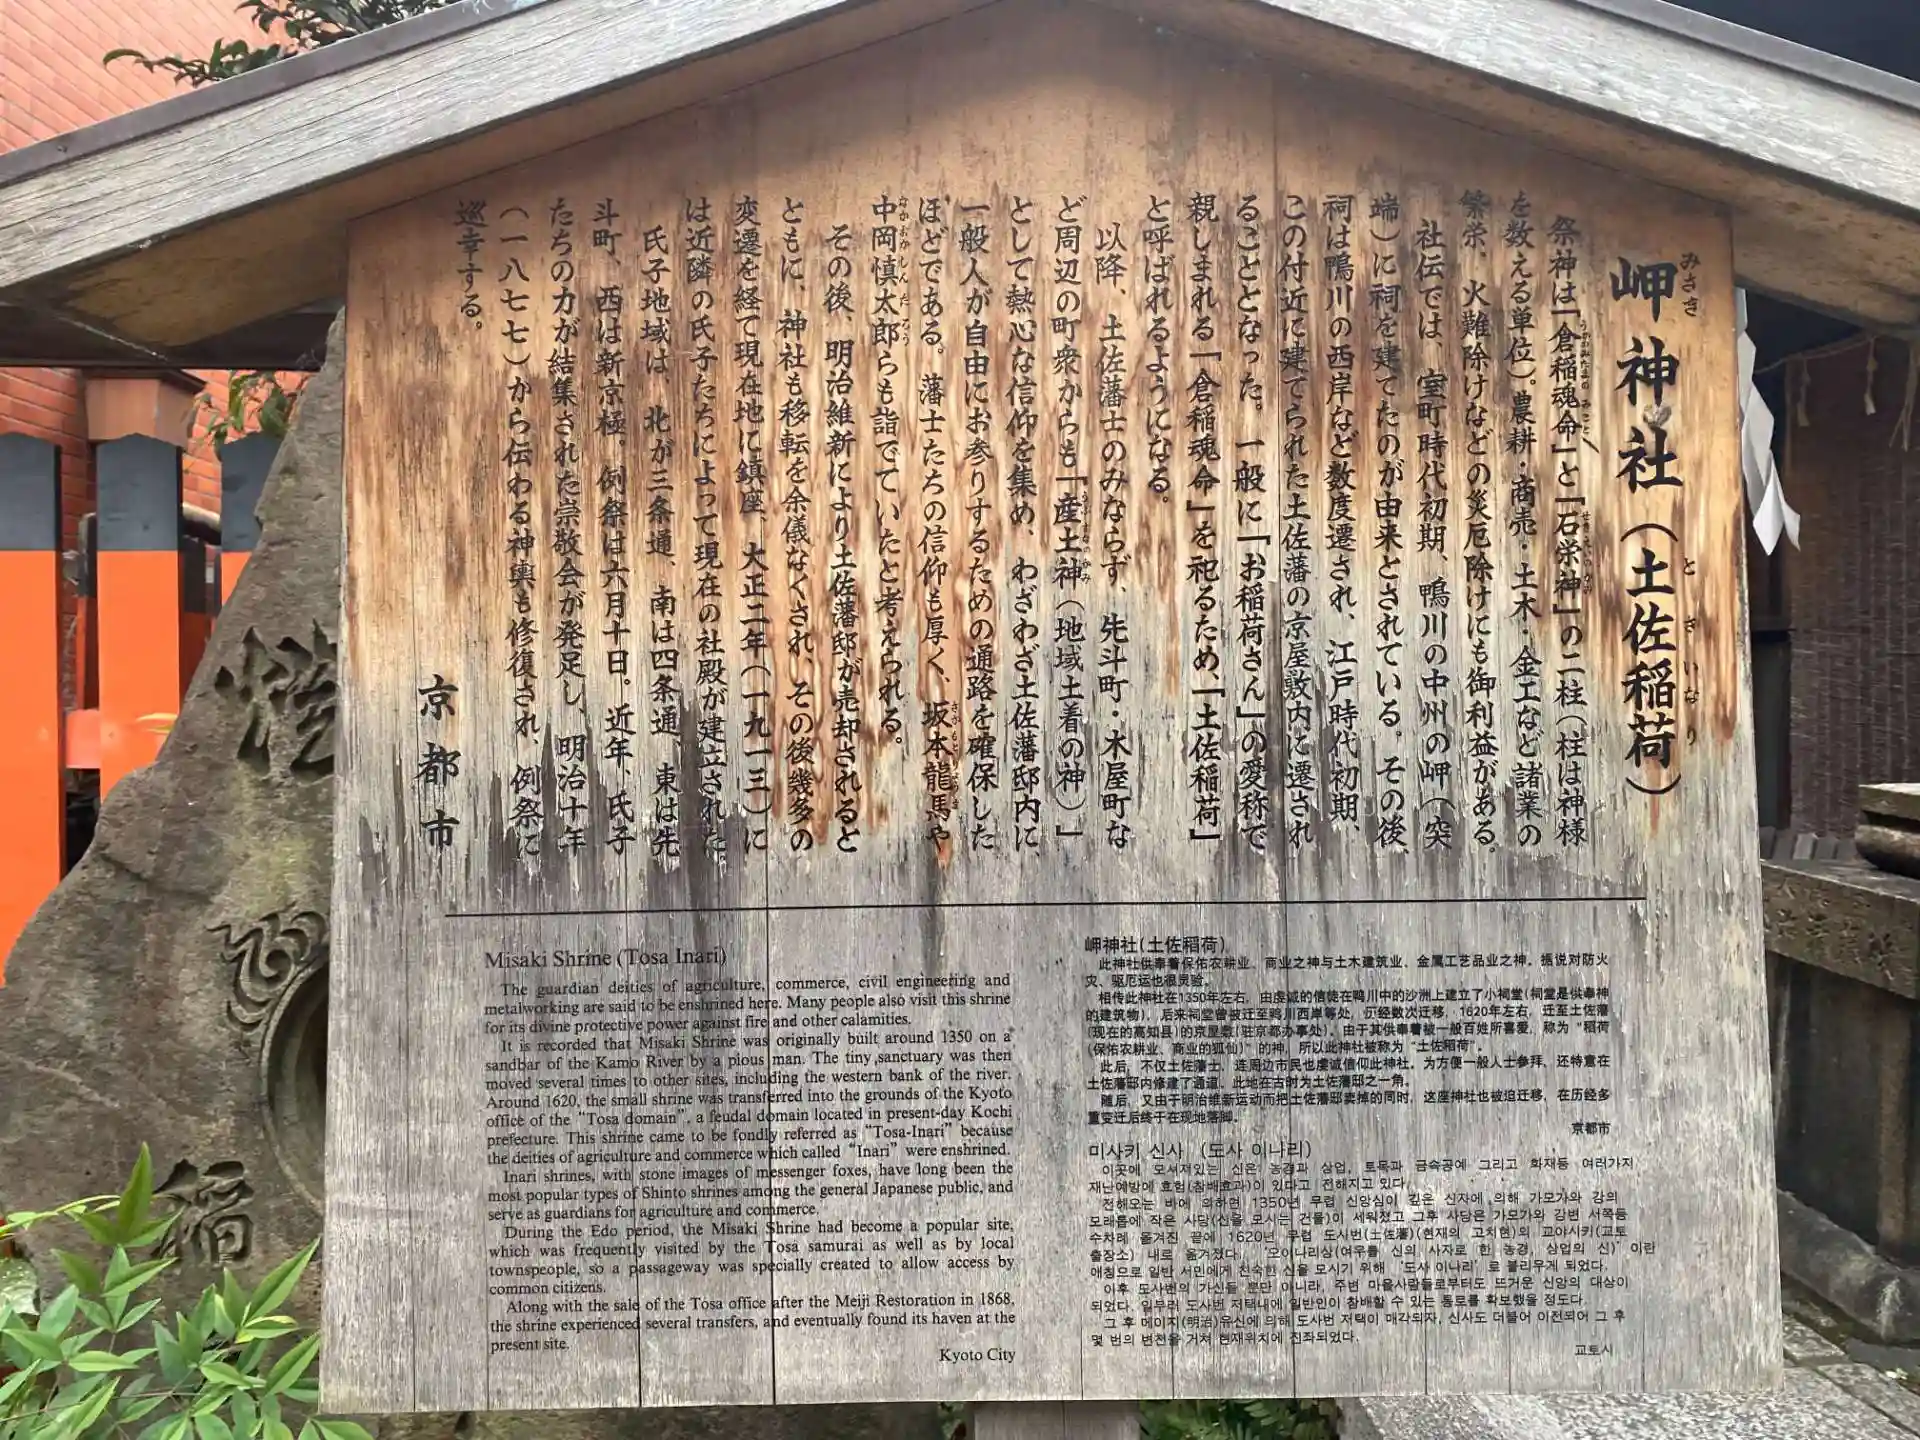 岬神社（土佐稲荷）
祭神は「倉稲魂命」と「石栄神」の二柱（柱は神様
を数える単位）。農耕・商売・土木・金工など諸業の
繁栄、火難除けなどの災厄除けにも御利益がある。
社伝では、室町時代初期、鴨川の中州の岬（突
端）に祠を建てたのが由来とされている。その後、
祠は鴨川の西岸など数度遷され、江戸時代初期、
この付近に建てられた土佐藩の京屋敷内に遷され
ることとなった。一般に「お稲荷さん」の愛称で
親しまれる「倉稲魂命」を祀るため、「土佐稲荷」
と呼ばれるようになる。
以降、土佐藩士のみならず、先斗町・木屋町な
ど周辺の町衆からも「産土神（地域土着の神）」
として熱心な信仰を集め、わざわざ土佐藩邸内に、
一般人が自由にお参りするための通路を確保した
ほどである。藩士たちの信仰も厚く、坂本龍馬や
中岡慎太郎らも詣でていたと考えられる。
その後、明治維新により土佐藩邸が売却されると
ともに、神社も移転を余儀なくされ、その後幾多の
変遷を経て現在地に鎮座、大正二年（一九一三）に
は近隣の氏子たちによって現在の社殿が建立された。
氏子地域は、北が三条通、南は四条通、東は先
斗町、西は新京極。例祭は六月十日。近年、氏子
たちの力が結集された崇敬会が発足し、明治十年
（一八七七）から伝わる神輿も修復され、例祭に
巡幸する。
京都市
Misaki Shrine (Tosa Inari)
The guardian deities of agriculture, commerce, civil engineering and
metalworking are said to be enshrined here. Many people also visit this shrine
for its divine protective power against fire and other calamities.
It is recorded that Misaki Shrine was originally built around 1350 on a
sandbar of the Kamo River by a pious man. The tiny sanctuary was then
moved several times to other sites, including the western bank of the river.
Around 1620, the small shrine was transferred into the grounds of the Kyoto
office of the “Tosa domain”, a feudal domain located in present-day Kochi
prefecture. This shrine came to be fondly referred as “Tosa-Inari” because
the deities of agriculture and commerce which called “Inari” were enshrined.
Inari shrines, with stone images of messenger foxes, have long been the
most popular types of Shinto shrines among the general Japanese public, and
serve as guardians for agriculture and commerce.
During the Edo period, the Misaki Shrine had become a popular site,
which was frequently visited by the Tosa samurai as well as by local
townspeople, so a passageway was specially created to allow access by
common citizens.
Along with the sale of the Tosa office after the Meiji Restoration in 1868,
the shrine experienced several transfers, and eventually found its haven at the
present site.
Kyoto City
岬神社(土佐稲荷)
此神社供奉着保佑农耕业、商业之神与土木建筑业、金属工艺品业之神。据说对防火
灾、驱厄运也很灵验。
相传此神社在1350年左右，由虔诚的信徒在鸭川中的沙洲上建立了小祠堂(祠堂是供奉神
的建筑物)，后来祠堂曾被迁至鸭川西岸等处，历经数次迁移，1620年左右，迁至土佐藩
(现在的高知县)的京屋敷(驻京都办事处)。由于其供奉着被一般百姓所喜爱，称为“稻荷
(保佑农耕业、商业的狐仙)”的神，所以此神社被称为“土佐稻荷”。
此后，不仅土佐藩士，连周边市民也虔诚信仰此神社。为方便一般人士参拜，还特意在
土佐藩邸内修建了通道。此地在古时为土佐藩邸之一角。
随后，又由于明治维新运动而把土佐藩邸卖掉的同时，这座神社也被迫迁移，在历经多
重变迁后终于在现地落脚。
京都市
미사키 신사 (도사 이나리)
이곳에 모셔져있는 신은 농경과 상업, 토목과 금속공예 그리고 화재등 여러가지
재난예방에 효험(참배효과)이 있다고 전해지고 있다.
전해오는 바에 의하면 1350년 무렵 신앙심이 깊은 신자에 의해 가모가와 강의
모래톱에 작은 사당(신을 모시는 건물)이 세워졌고 그후 사당은 가모가와 강변 서쪽등
수차례 옮겨진 끝에 1620년 무렵 도사번(土佐藩)(현재의 고치현)의 교야시키(교토
출장소) 내로 옮겨졌다. ‘오이나리상(여우를 신의 사자로 한 농경, 상업의 신)’이란
애칭으로 일반 서민에게 친숙한 신을 모시기 위해 ‘도사 이나리’로 불리우게 되었다.
이후 도사번의 가신들 뿐만 아니라, 주변 마을사람들로부터도 뜨거운 신앙의 대상이
되었다. 일부러 도사번 저택내에 일반인이 참배할 수 있는 통로를 확보했을 정도다.
그 후 메이지(明治)유신에 의해 도사번 저택이 매각되자, 신사도 더불어 이전되어 그 후
몇 번의 변천을 거쳐 현재위치에 진좌되었다.
교토시
福